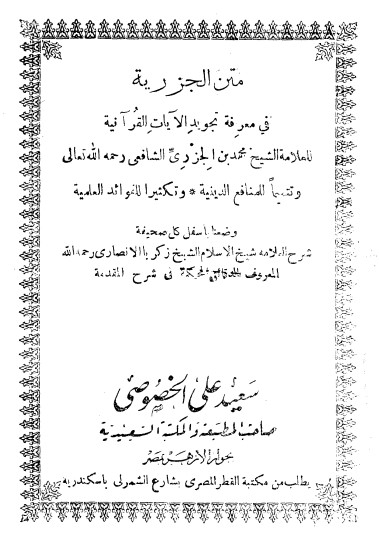 متن الجزرية
في معرفة تجويد الآيات القرآنية
للعلامة الشيخ محمد بن الجزرىّ الشافعى رحمه الله تعالى
وتتميماً للمنافع الدينية * وتكثيرا للفوائد العلمية
وضعنا باسفل كل صحيفة
شرح العلامه شيخ الاسلام الشيخ زكريا الانصارى رحمه الله
المعروف فى شرح المقدمة
سعيد على الخصوصى
صاحب المطبعة والمكتبة السعيدية
بجوار الازهر بمصر
يطلب من مكتبة القطر المصرى بشارع الشمرلى باسكندريه